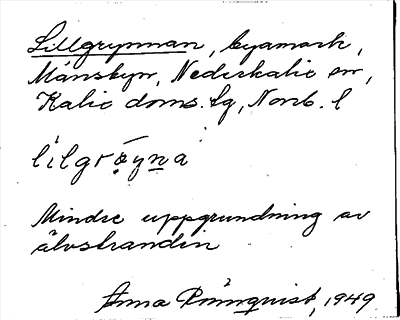 Lillgrynnan, byamark,
Månsbyn, Nederkalix sn,
Kalix doms. lg, Norrb. l
lìlgrö́yna
Mindre uppgrundning av
älvstranden
Anna Rönnquist, 1949